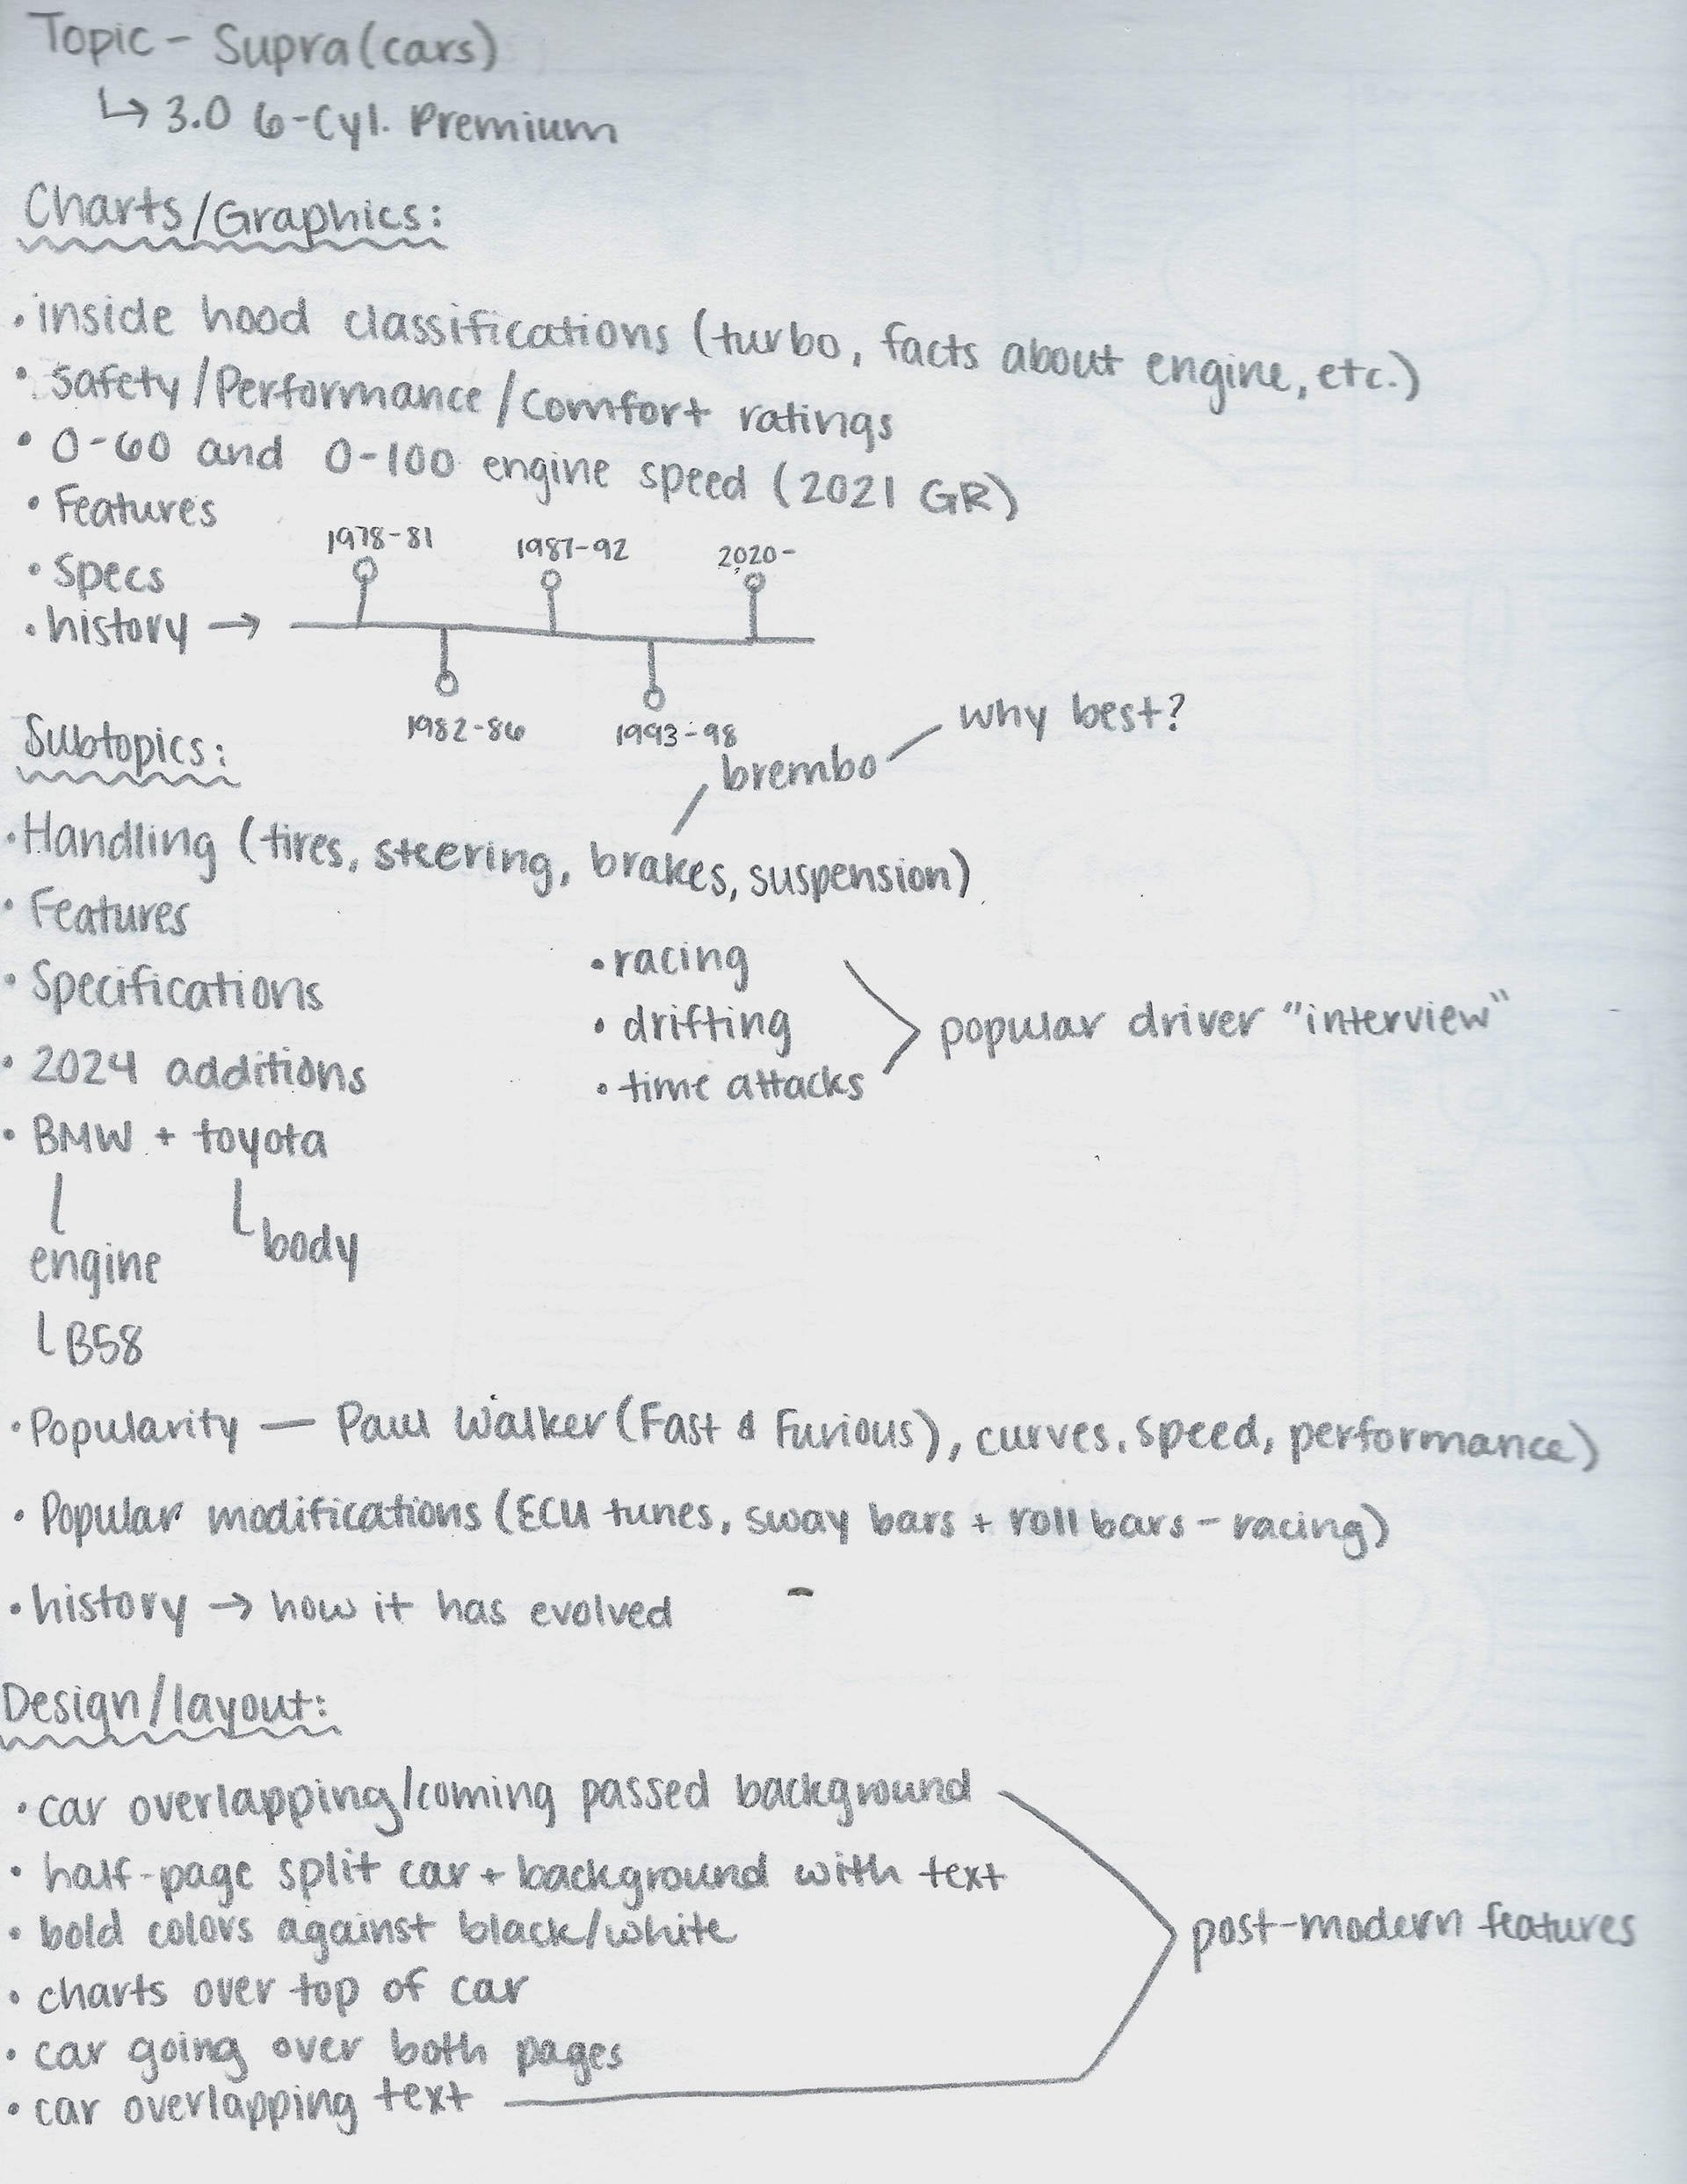 Topic - Supra (cars)
↳ 3.0 6-Cyl. Premium
Charts/Graphics:
• inside hood classifications (turbo, facts about engine, etc.)
• Safety/Performance/Comfort ratings
• 0-60 and 0-100 engine speed (2021 GR)
• Features
1978-81 1987-92 2020-
• Specs
• history →
1982-86 1993-98
why best?
Subtopics:
brembo
• Handling (tires, steering, brakes, suspension)
• Features
• racing
• Specifications
• drifting
popular driver "interview"
• 2024 additions
• time attacks
• BMW + toyota
engine
body
B58
• Popularity — Paul Walker (Fast & Furious), curves, speed, performance)
• Popular modifications (ECU tunes, sway bars + roll bars - racing)
• history → how it has evolved
Design/layout:
• car overlapping/coming passed background
• half-page split car + background with text
• bold colors against black/white
post-modern features
• charts over top of car
• car going over both pages
• car overlapping text